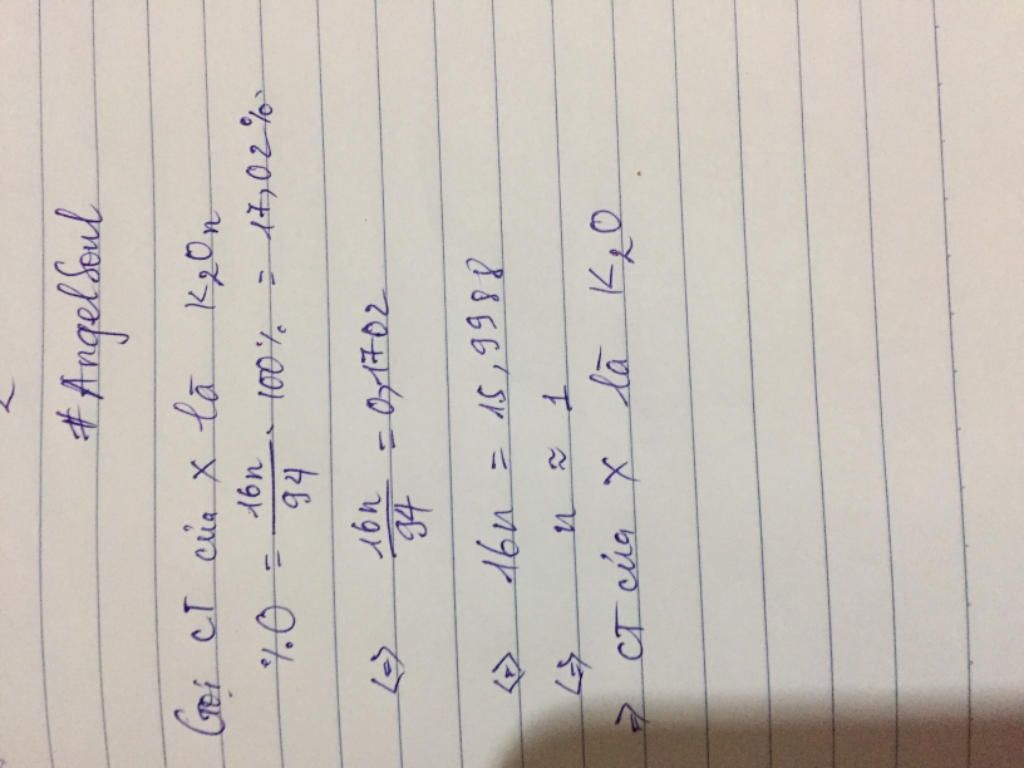 #AngelSoul
Gọi CT của X là K₂Oₙ
%O = 16n/94 . 100% = 17,02%
<=> 16n/94 = 0,1702
<=> 16n = 15,9988
<=> n ≈ 1
=> CT của X là K₂O